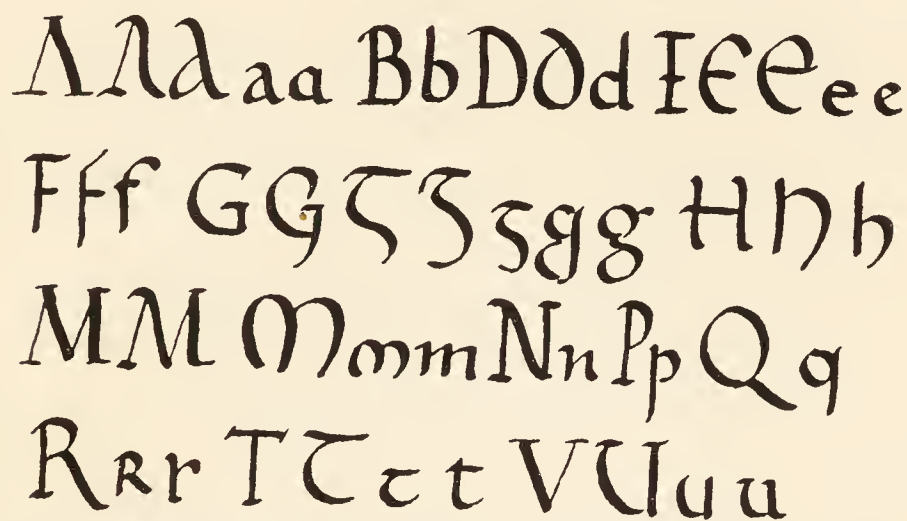 Λ λ a a a B b D D d E E E e e
F f f G G G G g g g H h h
M M M m m N n P p Q q
R R r T T t t V U u u